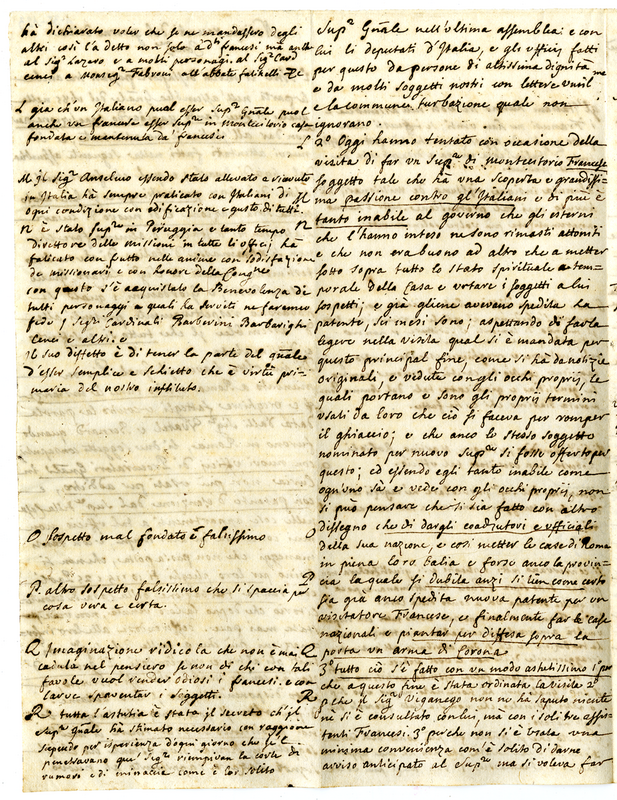 hà dichiarato voler che se ne mandassero degli
altri così l'à detto non solo à dti francesi mà anche
al Sigr Lazero e a molti personagi al Sigr Card
cenci a Monsigr Fabroni all'abbate
L già ch'un Italiano puol esser Supr Gñale puol
anche un francese esser Supre in Montecitorio casa
fondata e mantenuta da francesi
M il Sigr Anselmo essendo stato allevato e vivuto
in Italia hà sempre praticato con Italiani di
ogni condizione con edificazione e gusto di tutti.
N è stato Supre in Pereggia e tanto tempo
direttore delle missioni in tutte li offici; hà
faticato con frutto nelle anime con sodisfazione
de missionarii e con honore della Congne
con questo s'è acquistato la Benevolenza di
tutti personaggi a quali hà servito ne faranno
fede i Sigri Cardinali Barberini Barbarighi
Cenci e altri. e
il suo diffetto è di tener la parte del gñale
d'esser semplice e schietto che è virtù pri-
maria del nostro instituto.
O sospetto mal fondato è falsissimo
P. altro sospetto falsissimo che si spaccia per
cosa vera e certa.
Q Imaginazione ridicola che non è mai
caduta nel pensiero se non di chi con tali
favole vuol render odiosi i francesi. e con
larve spaventar i soggetti.
R tutta l'astutia è stata il secreto ch'il
supre Gñale hà stimato necessario con raggione
sapendo per isperienza dogni giorno che se
penetravano que Sigri riempivan la corte di
rumori e di minaccia come è lor solito
Supre Gñale nell'ultima assemblea: e con
lui li deputati d'Italia, e gli officij fatti
per questo da persone di altissima dignità
e da molti soggetti nostri con lettere
e la commune turbazione quale non
L ignorano.
2o Oggi hanno tentato con occasione della
visita di far un Supre di Montecitorio Francese
M soggetto tale che hà una scoperta e grandissi-
ma passione contro gl'Italiani e di più è
N tanto inabile al governo che gli esterni
che l'hanno inteso ne sono rimasti attoniti
e che non era buono ad altro che a metter
sotto sopra tutto lo stato spirituale e tem-
porale della Casa e votare i soggetti a lui
sospetti; e già gliene avevano spedita la
patente, sei mesi sono; aspettando di farla
legere nella visita qual si è mandata per
questo principal fine, come si hà da notizie
originali, e vedute con gli occhi proprij, le
quali portano e sono gli proprij termini
usati da loro che ciò si faceva per romper
il ghiaccio; e che anco lo stesso soggetto
nominato per nuovo Supre si fosse offerto per
questo; ed essendo egli tanto inabile come
ogn'uno sà e vede con gli occhi proprij, non
si può pensare che si sia fatto con altro
dissegno che di dargli coadjutori e ufficiali
O della sua nazione, e così metter le case di Roma
in piena loro balia e forse anco la provin-
P cia la quale si dubita anzi si tien come certo
sia già anco spedita nuova patente per un
visitatore Francese, e finalmente far le case
Q nazionali e piantar per diffesa sopra la
porta un arma di Corona
3o tutto ciò s'è fatto con un modo astutissimo i per
R che a questo fine è stata ordinata la visita 2o
pche il Sigr Viganego non ne hà saputo niente
ne si è consultato con lui, ma con i soli tre assis-
tenti Francesi. 3o perche non si è usata una
minima convenienza com'è solito di darne
avviso anticipato al Supre ma si voleva far